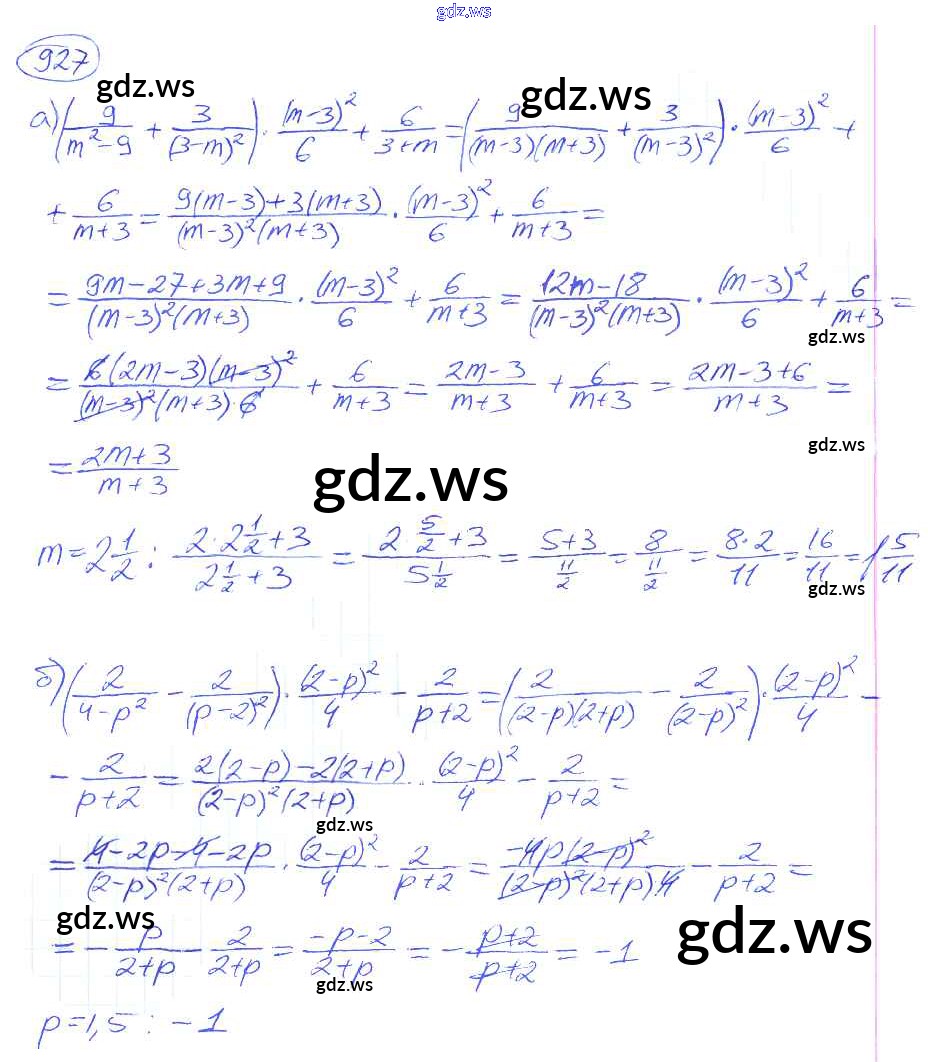 gdz.ws
927
gdz.ws gdz.ws
а) (9/(m²-9) + 3/(3-m)²) · (m-3)²/6 + 6/(3+m) = (9/((m-3)(m+3)) + 3/(m-3)²) · (m-3)²/6 +
+ 6/(m+3) = (9(m-3)+3(m+3))/((m-3)²(m+3)) · (m-3)²/6 + 6/(m+3) =
= (9m-27+3m+9)/((m-3)²(m+3)) · (m-3)²/6 + 6/(m+3) = (12m-18)/((m-3)²(m+3)) · (m-3)²/6 + 6/(m+3) =
gdz.ws
= (6(2m-3)(m-3)²)/((m-3)²(m+3)·6) + 6/(m+3) = (2m-3)/(m+3) + 6/(m+3) = (2m-3+6)/(m+3) =
gdz.ws
= (2m+3)/(m+3)
gdz.ws
m = 2 1/2 : (2·2 1/2 + 3)/(2 1/2 + 3) = (2·5/2 + 3)/(5 1/2) = (5+3)/(11/2) = 8/(11/2) = (8·2)/11 = 16/11 = 1 5/11
gdz.ws
б) (2/(4-p²) - 2/(p-2)²) · (2-p)²/4 - 2/(p+2) = (2/((2-p)(2+p)) - 2/(2-p)²) · (2-p)²/4 -
- 2/(p+2) = (2(2-p)-2(2+p))/((2-p)²(2+p)) · (2-p)²/4 - 2/(p+2) =
gdz.ws
= (4-2p-4-2p)/((2-p)²(2+p)) · (2-p)²/4 - 2/(p+2) = (-4p(2-p)²)/((2-p)²(2+p)·4) - 2/(p+2) =
gdz.ws gdz.ws
= - p/(2+p) - 2/(2+p) = (-p-2)/(2+p) = - (p+2)/(p+2) = -1
gdz.ws
p = 1,5 : -1